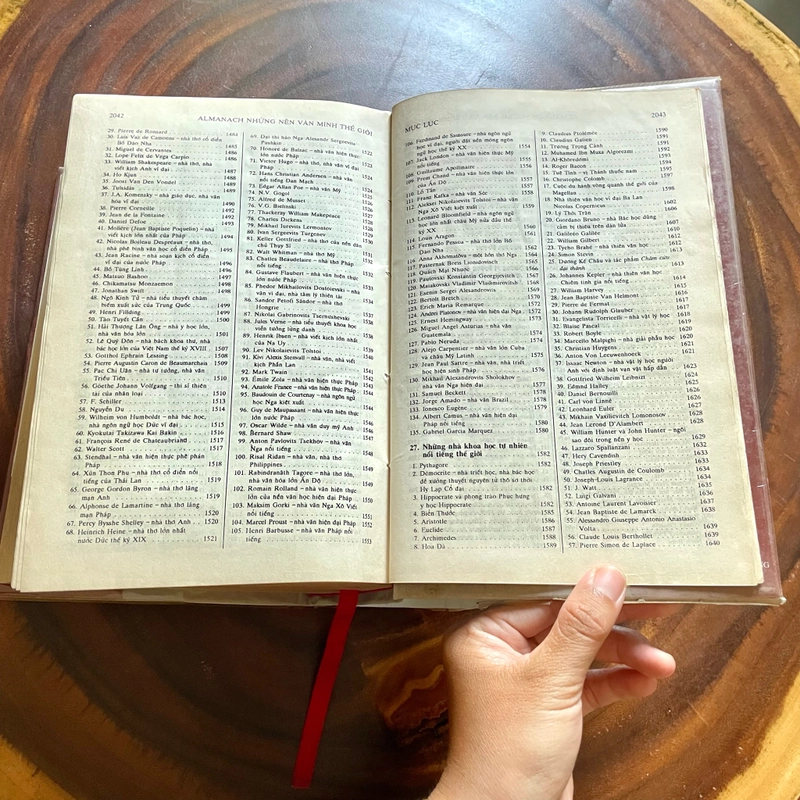 2042
ALMANACH NHỮNG NỀN VĂN MINH THẾ GIỚI
29. Pierre de Ronsard 1484
30. Luis Vaz de Camoens – nhà thơ cổ điển
Bồ Đào Nha 1485
31. Miguel de Cervantes 1486
32. Lope Felix de Vega Carpio 1486
33. William Shakespeare – nhà thơ, nhà
viết kịch Anh vĩ đại 1487
34. Ho Kjun 1488
35. Joost Van Den Vondel 1489
36. Tulsidas 1489
37. J.A. Komensky – nhà giáo dục, nhà văn
hóa vĩ đại 1490
38. Pierre Corneille 1492
39. Jean de la Fontaine 1492
40. Daniel Defoe 1493
41. Molière (Jean Baptise Poquelin) – nhà
viết kịch lớn nhất của Pháp 1494
42. Nicolas Boileau Despréaux – nhà thơ,
nhà phê bình văn học cổ điển Pháp
1495
43. Jean Racine – nhà soạn kịch cổ điển
vĩ đại của nước Pháp 1496
44. Bồ Tùng Linh 1496
45. Matsuo Bashoo 1497
46. Chikamatsu Monzaemon 1498
47. Jonathan Swift 1498
48. Ngô Kính Tử – nhà tiểu thuyết châm
biếm xuất sắc của Trung Quốc 1499
49. Henri Filding 1499
50. Tào Tuyết Cần 1500
51. Hải Thượng Lãn Ông – nhà y học lớn,
nhà văn hóa lớn 1501
52. Lê Quý Đôn – nhà bách khoa thư, nhà
bác học lớn của Việt Nam thế kỷ XVIII 1507
53. Gotthol Ephrain Lessing 1508
54. Pierre Augustin Caron de Beaumarchais 1509
55. Pac Chi Uân – nhà tư tưởng, nhà văn
Triều Tiên 1510
56. Goethe Johann Volfgang – thi sĩ thiên
tài của nhân loại 1510
57. F. Schiller 1513
58. Nguyễn Du 1514
59. Wilheim von Humboldt – nhà bác học,
nhà ngôn ngữ học Đức vĩ đại 1515
60. Kyokutai Takizawa Kai Bakin 1516
61. François René de Chateaubriand 1517
62. Walter Scott 1517
63. Stendhal – nhà văn hiện thực phê phán
Pháp 1518
64. Xún Thon Phu – nhà thơ cổ điển nổi
tiếng của Thái Lan 1519
65. George Gordon Byron – nhà thơ lãng
mạn Anh 1519
66. Alphonse de Lamartine – nhà thơ lãng
mạn Pháp 1520
67. Percy Byashe Shelley – nhà thơ Anh 1520
68. Heinrich Heine – nhà thơ lớn nhất
nước Đức thế kỷ XIX 1521
69. Đại thi hào Nga Alexandr Sergeevis
Pushkin
70. Honoré de Balzac – nhà văn hiện thực
lớn nước Pháp 1522
71. Victor Hugo – nhà thơ, nhà văn vĩ đại
Pháp 1523
72. Hans Christian Andersen – nhà văn
nổi tiếng Đan Mạch
73. Edgar Allan Poe – nhà văn Mỹ
74. N.V. Gogol
75. Alfred de Musset
76. V.G. Bielinski
77. Thackeray William Makepeace
78. Charles Dickens
79. Mikhail Iurevis Lermontov
80. Ivan Sergeevits Turgenev
81. Keller Gottfried – nhà thơ của nền dân
chủ Thụy Sĩ
82. Walt Whitman – nhà thơ Mỹ
83. Charles Beaudelaire – nhà thơ Pháp
nổi tiếng
84. Gustave Flaubert – nhà văn hiện thực
lớn nước Pháp
85. Phedor Mikhailovis Dostoievski – nhà
văn vĩ đại, nhà tâm lý thiên tài
86. Sandor Petofi Sándor – nhà thơ
Hongrie
87. Nikolai Gabrinovits Tsernishevski
88. Jules Verne – nhà tiểu thuyết khoa học
viễn tưởng lừng danh
89. Henrik Ibsen – nhà viết kịch lớn nhất
của Na Uy
90. Lev Nikolaievits Tolstoi
91. Kivi Alexis Stenvall – nhà văn, nhà viết
kịch Phần Lan
92. Mark Twain
93. Émile Zola – nhà văn hiện thực Pháp 1542
94. Anatole France – nhà văn Pháp
95. Baudouin de Courtenay – nhà ngôn ngữ
học Nga kiệt xuất 1544
96. Guy de Maupassant – nhà văn hiện thực
Pháp
97. Oscar Wilde – nhà văn duy mỹ Anh
98. Bernard Shaw
99. Anton Pavlovits Tsekhov – nhà văn
Nga nổi tiếng
100. Risal Ridan – nhà văn, nhà thơ
Philippines 1549
101. Rabindranàth Tagore – nhà thơ lớn,
nhà văn hóa lớn Ấn Độ
102. Romain Rolland – nhà văn hiện thực
lớn của nền văn học hiện đại Pháp 1550
103. Maksim Gorki – nhà văn Nga Xô Viết
nổi tiếng 1551
104. Marcel Proust – nhà văn hiện đại Pháp 1552
105. Henri Barbusse – nhà văn Pháp nổi
tiếng 1553
MỤC LỤC
2043
106. Ferdinand de Saussure – nhà ngôn ngữ
học vĩ đại, người đặt nền móng ngôn
ngữ học thế kỷ XX 1554
107. Jack London – nhà văn hiện thực Mỹ
nổi tiếng 1555
108. Guillaume Apollinaire 1556
109. Prem Chand – nhà văn hiện thực lớn
của Ấn Độ 1557
110. Lỗ Tấn 1557
111. Franz Kafka – nhà văn Séc 1558
112. Alekxei Nikolaievits Tolstoi – nhà văn
Nga Xô Viết kiệt xuất 1559
113. Leonard Bloomfield – nhà ngôn ngữ
học lớn nhất châu Mỹ nửa đầu thế
kỷ XX 1560
114. Louis Aragon 1561
115. Fernando Pessoa – nhà thơ lớn Bồ
Đào Nha 1562
116. Anna Akhmatova – nhà thơ lớn Nga 1563
117. Pasternak Boris Lionodovich 1565
118. Quách Mạt Nhược 1566
119. Pautovski Konstantin Georgievitch 1567
120. Maiakovski Vladimir Vladimirovitsh 1568
121. Esenin Sergei Alexandrovits 1569
122. Bertolt Bretch 1570
123. Erich Maria Remarque 1572
124. Andrei Platonov – nhà văn hiện đại Nga 1572
125. Ernest Hemingway 1573
126. Miguel Angel Asturias – nhà văn
Guatemala 1573
127. Pablo Neruda 1574
128. Alejo Carpentier – nhà văn lớn Cuba
và châu Mỹ Latinh 1575
129. Jean Paul Sartre – nhà văn, nhà triết
học hiện sinh Pháp 1576
130. Mikhail Alexandrovits Sholokhov
nhà văn Nga hiện đại 1577
131. Samuel Beckett 1578
132. Jorge Amado – nhà văn Brazil 1578
133. Ionesco Eugène 1579
134. Albert Camus – nhà văn hiện đại
Pháp 1580
135. Gabriel Garcia Marquez 1580
27. Những nhà khoa học tự nhiên
nổi tiếng thế giới 1582
1. Pythagore 1582
2. Démocrite – nhà triết học, nhà bác học
đề xướng thuyết nguyên tử thô sơ thời
Hy Lạp Cổ đại 1582
3. Hippocrate và phong trào Phục hưng
y học Hippocrate 1582
4. Biển Thước 1585
5. Aristotle 1586
6. Euclide 1587
7. Archimedes 1588
8. Hoa Đà 1589
9. Claudius Ptolémée 1590
10. Claudius Galien 1591
11. Trương Trọng Cảnh 1591
12. Muhamed Ibn Muxa Algorezmi 1592
13. Al-Khrezdemi 1594
14. Roger Bacon 1594
15. Tuệ Tĩnh – vị Thánh thuốc nam 1595
16. Christophe Colomb 1597
17. Cuộc du hành vòng quanh thế giới của
Magellan 1598
18. Nhà thiên văn học vĩ đại Ba Lan
Nicolas Copernicus 1602
19. Lý Thời Trân
20. Giordano Bruno – nhà Bác học dũng
cảm tự thiêu trên dàn lửa 1607
21. Galileo Galilée 1610
22. William Gilbert 1611
23. Tycho Brahe – nhà thiên văn học 1612
24. Simon Stevin 1613
25. Dương Kế Châu và tác phẩm Châm cứu
đại thành
26. Johannes Kepler – nhà thiên văn học
Chiêm tinh gia nổi tiếng 1614
27. William Harvey 1616
28. Jean Baptiste Van Helmont 1616
29. Pierre de Fermat 1617
30. Johann Rudolph Glauber 1618
31. Evangelista Torricelli – nhà vật lý học 1619
32. Blaise Pascal 1619
33. Robert Boyle 1620
34. Marcello Malpighi – nhà giải phẫu học 1620
35. Christian Huygens 1621
36. Anton Von Leeuwenhoeck 1621
37. Isaac Newton – nhà vật lý học người
Anh với định luật vạn vật hấp dẫn 1623
38. Gottfried Wilhelm Leibnizt 1624
39. Edmnd Halley
40. Daniel Bernouilli
41. Carl von Linné
42. Leonhard Euler
43. Mikhain Vaxilievitch Lomonosov
44. Jean Lerond D'Alambert 1628
45. William Hunter và John Hunter – ngôi
sao đôi trong nền y học 1629
46. Lazzaro Spallanzani 1632
47. Hery Cavendish 1633
48. Joseph Priestley 1633
49. Charles Augustin de Coulomb 1634
50. Joseph-Louis Lagrance 1634
51. J. Watt 1635
52. Luigi Galvani 1636
53. Antoine Laurent Lavoisier 1637
54. Jean Baptiste de Lamarck 1638
55. Alessandro Giuseppe Antonio Anastasio
Volta 1639
56. Claude Louis Berthollet 1639
57. Pierre Simon de Laplace 1640